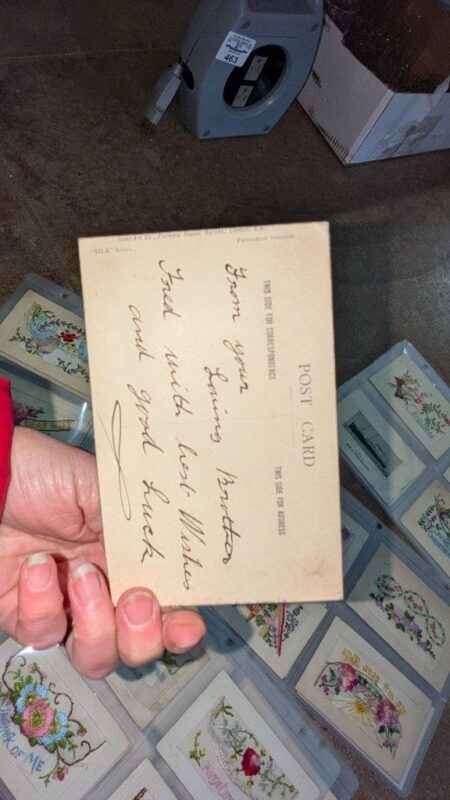 POST CARD
THIS SIDE FOR CORRESPONDENCE
THIS SIDE FOR ADDRESS
From your
Loving Brother
Fred with best Wishes
and good Luck
463
OF ME